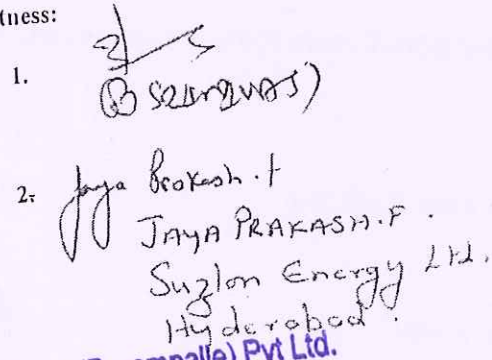 tness:
1.
2.
Jaya Prakash.F
JAYA PRAKASH.F.
Suzlon Energy Ltd.
Hyderabad.
mpalle) Pvt Ltd.